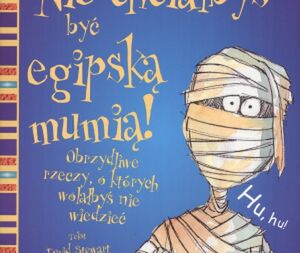 Nie chciałbyś
być
egipską
mumią!
Obrzydliwe
rzeczy, o których
wolałbyś nie
wiedzieć
Hu, hu!
Tekst
David Stewart